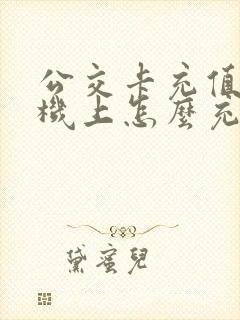 公交卡充值
機上怎麼充
黛蜜兒